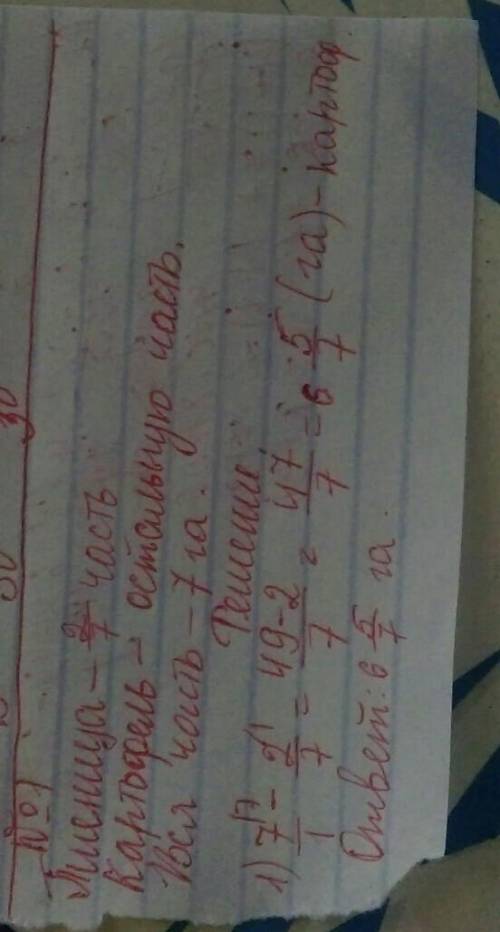 №1
Пшеница – 2/7 часть
Картофель – остальную часть.
Вся часть – 7 га.
Решение
1) 7/1 – 2/7 = 49-2/7 = 47/7 = 6 5/7 (га) – картоф.
Ответ: 6 5/7 га.